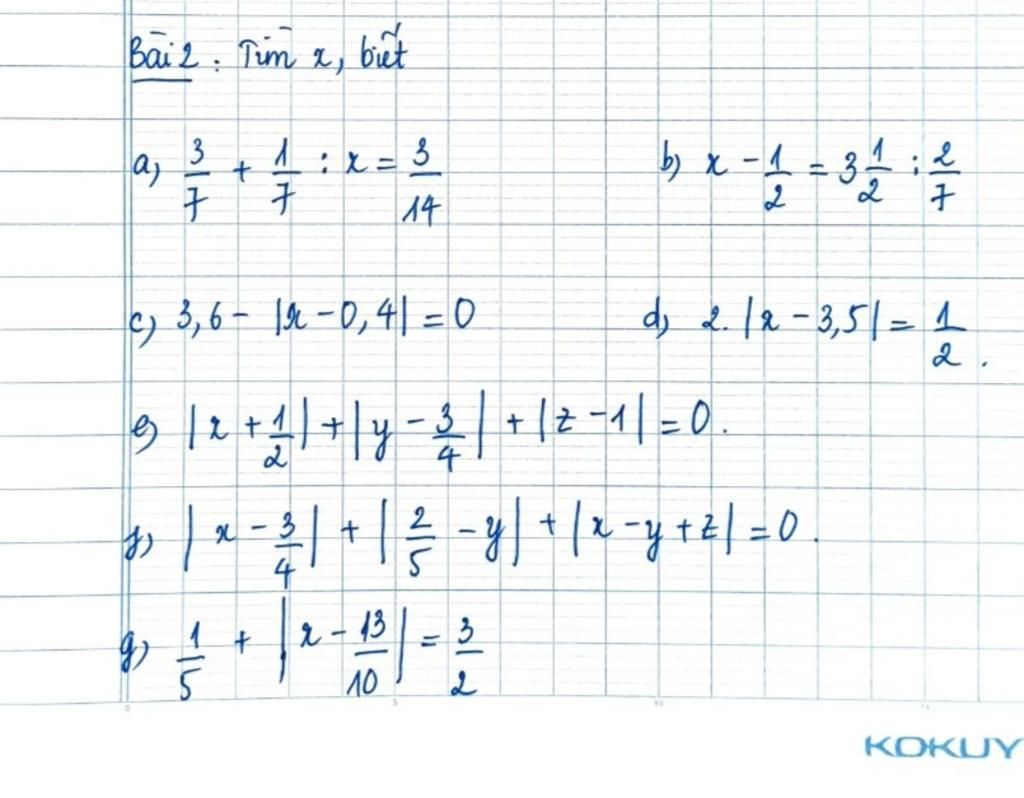 Bài 2 : Tìm x, biết
a) 3/7 + 1/7 : x = 3/14
b) x - 1/2 = 3 1/2 : 2/7
c) 3,6 - |x - 0,4| = 0
d) 2. |x - 3,5| = 1/2.
e) |x + 1/2| + |y - 3/4| + |z - 1| = 0.
f) |x - 3/4| + |2/5 - y| + |x - y + z| = 0.
g) 1/5 + |x - 13/10| = 3/2
0 5 10 15
KOKUY